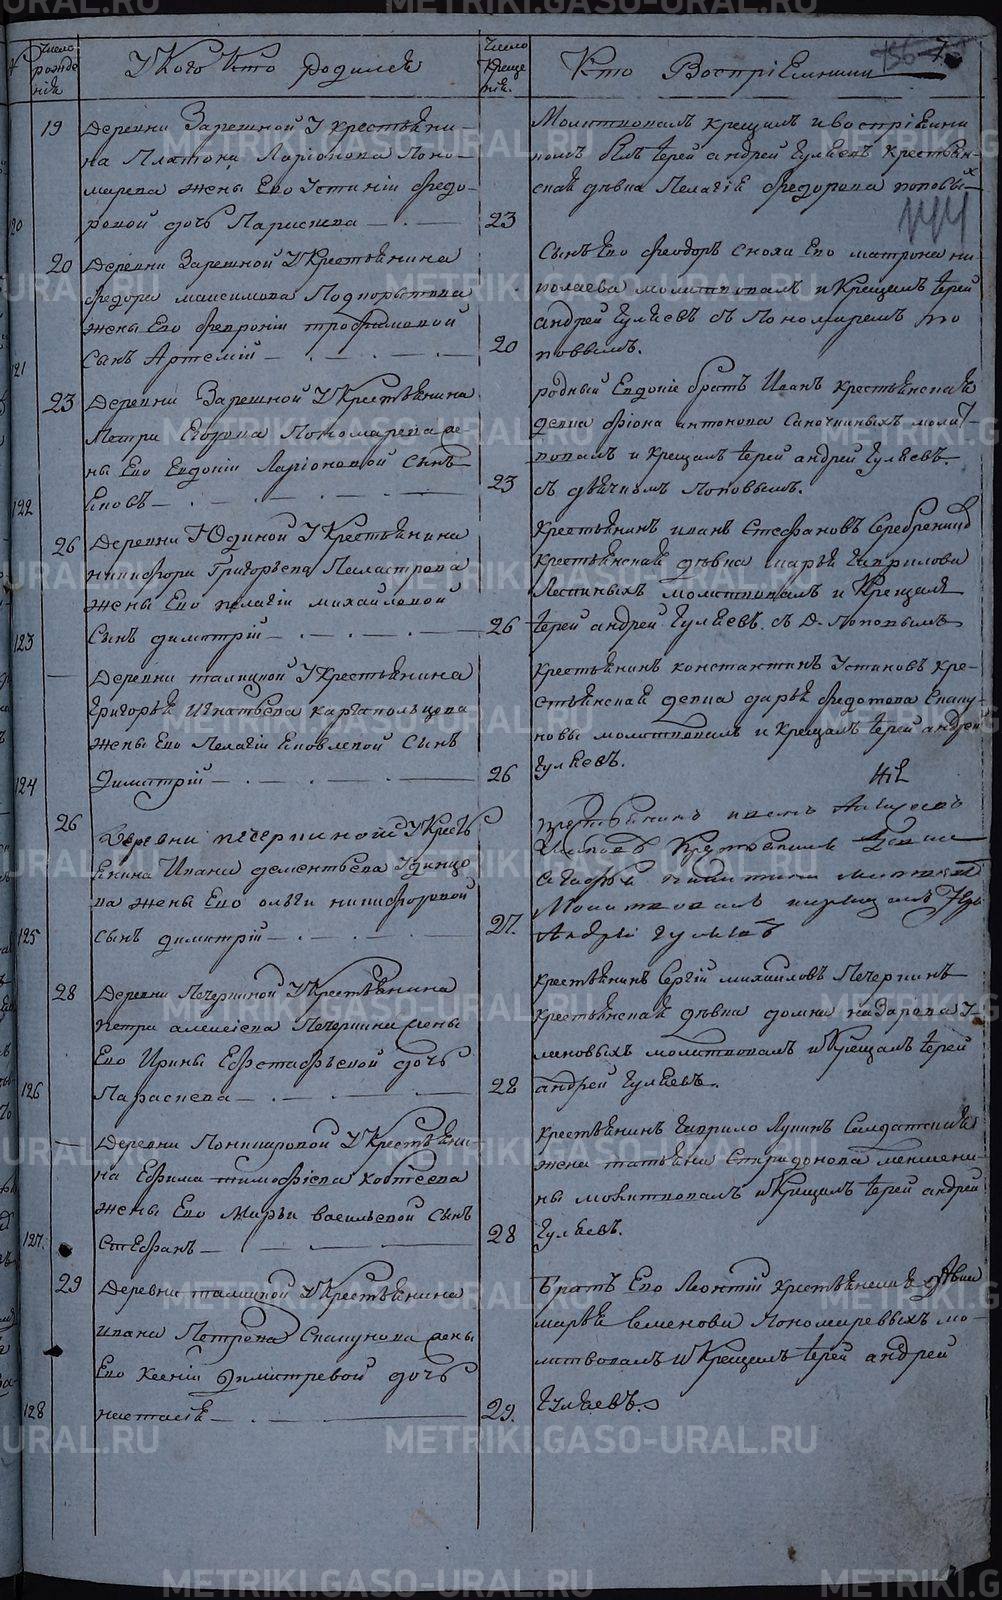 Число рожденія
У Кого Кто родился
Число Крещенія.
Кто Воспріемники
19
Деревни Зарешной У крестьяни-
на Платона Ларіонова Поно-
марева жены Его Устиніи Федо-
ровой дочь Параскева
23
Молитвовалъ крещалъ и воспріемни
комъ былъ Іерей андрей Гуляевъ крестьян-
ская дѣвка Пелагія Федорова поповыхъ
20
Деревни Зарешной У Крестьянина
Федора максимова
жены Его Февроніи трофимовой
Сынъ Артемій
20
Сынъ Его Феодоръ Сноха Его матрона ни-
колаева молитвовалъ и Крещалъ Іерей
андрей Гуляевъ съ Пономаремъ по
повымъ.
121
23
Деревни Зарешной У Крестьянина
Петра Егорова Пономарева же-
ны Его Евдокіи Ларіоновой Сынъ
Іяковъ
23
родный Евдокіе братъ Иванъ крестьянская
девка антонова молит-
вовалъ и Крещалъ Іерей андрей Гуляевъ
съ дьячкомъ Поповымъ.
122
26
Деревни Юдиной У Крестьянина
никифора Григорьева
жены Его пелагіи михайловой
Сынъ димитрій
26
Крестьянинъ иванъ Стефановъ
крестьянская дѣвка марья Гаврилова
молитвовалъ и Крещалъ
Іерей андрей Гуляевъ. съ Д. Поповымъ
123
Деревни талицкой У Крестьянина
Григорья Игнатьева каргапольцева
жены Его Пелагіи Іяковлевой Сынъ
Димитрій
26
Крестьянинъ константинъ Устиновъ кре-
стьянская девка дарья Федотова Сапу-
новы молитвовалъ и Крещалъ Іерей андрей
Гуляевъ.
124
26
Деревни печеркиной У Кресть
янина Ивана дементьева
жены Его ольги никифоровой
сынъ димитрій
27.
Молитвовалъ
Андрей Гуляевъ
125
28
Деревни Печеркиной У Крестьянина
петра алексіева Печеркина жены
Его Ирины Евстафьевой дочь
Параскева
28
крестьянинъ Сергій михайловъ Печеркинъ
крестьянская дѣвка домна назарова У-
молитвовалъ и Крещалъ Іерей
андрей Гуляевъ.
126
Деревни У Крестьяни-
на Ефима тимофіева
жены Его Марьи васильевой Сынъ
Стефанъ
28
крестьянинъ Гаврило Лукинъ Салдатская
жена татьяна Спиридонова меншени-
ны молитвовалъ и Крещалъ Іерей андрей
Гуляевъ.
127.
29
Деревни талицкой У Крестьянина
ивана Петрова Сапунова жены
Его Ксеніи Димитревой дочь
настасія
29.
Братъ Его Леонтій крестьянская девка
марья Семенова Пономаревыхъ мо-
литвовалъ и Крещалъ Іерей андрей
Гуляевъ.
128
METRIKI.GASO-URAL.RU